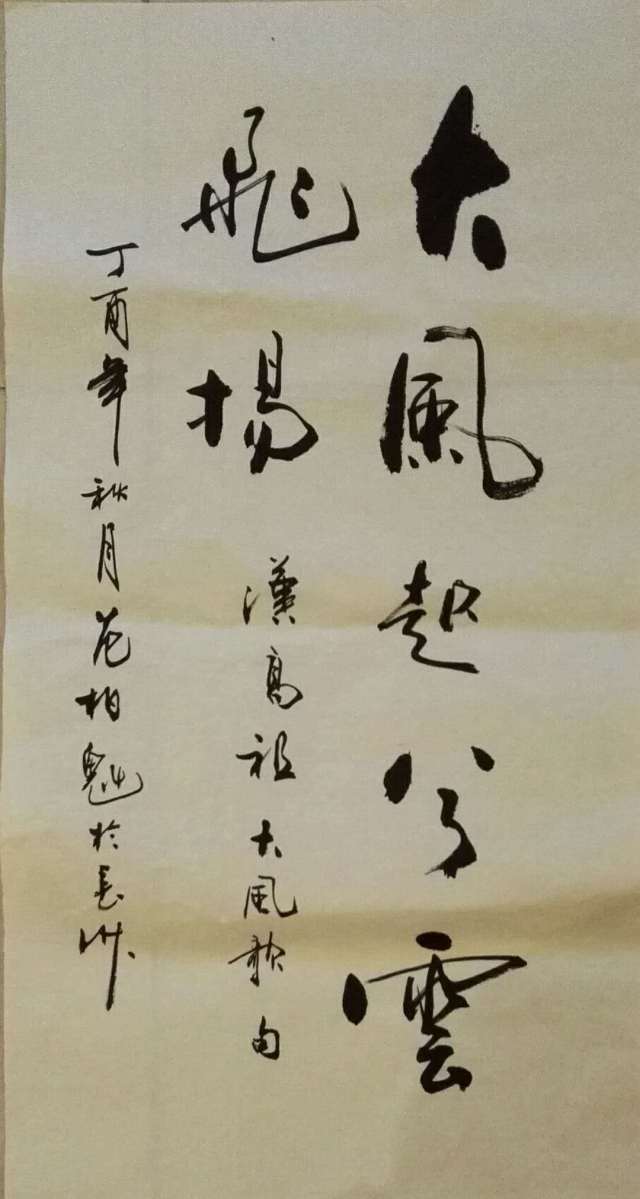 大風起兮雲
飛揚
漢高祖大風歌句
丁酉年秋月范柏魁於長沙